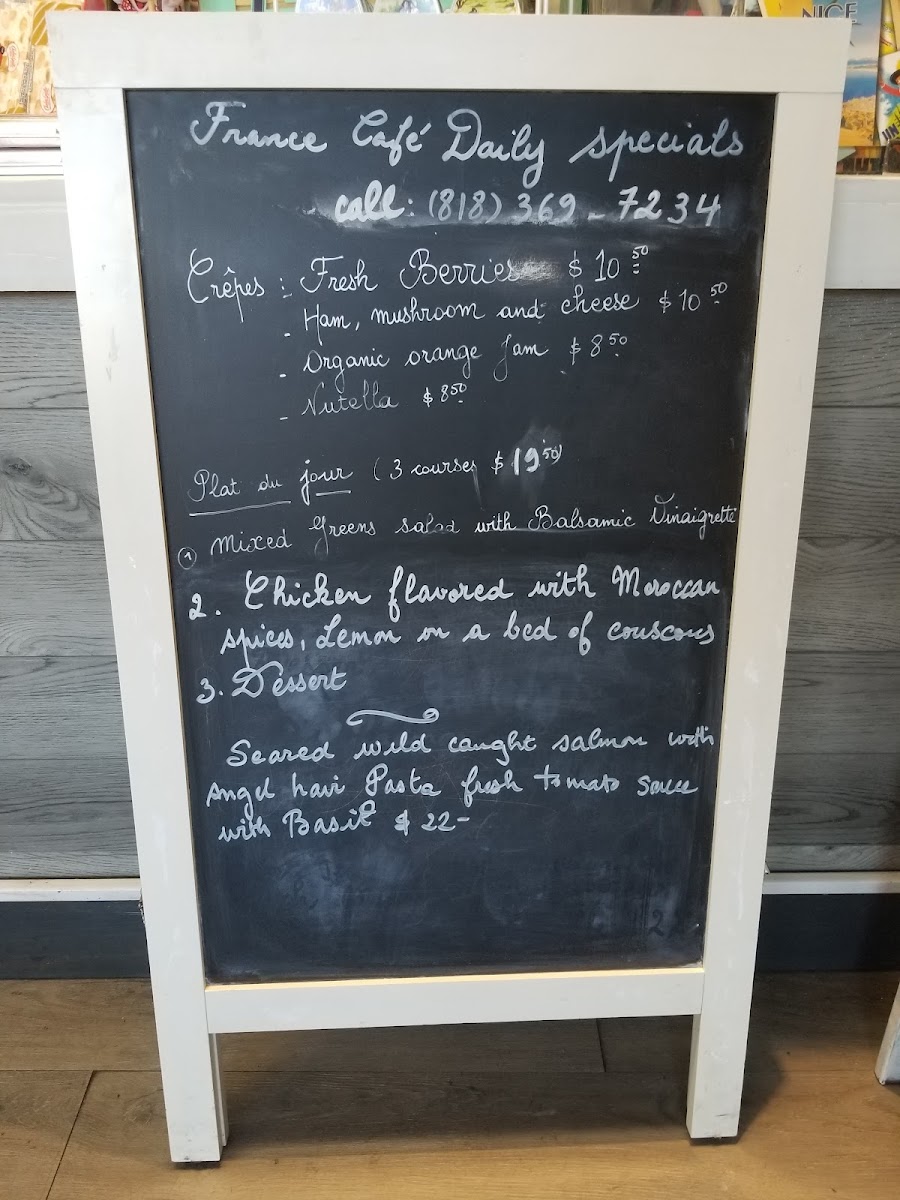 NICE
France Café Daily specials
call: (818) 369-7234
Crêpes : Fresh Berries $10.50
- Ham, mushroom and cheese $10.50
- Organic orange Jam $8.50
- Nutella $8.50
Plat du jour (3 courses $19.50)
1 Mixed Greens salad with Balsamic Vinaigrette
2. Chicken flavored with Moroccan
spices, Lemon on a bed of couscous
3. Dessert
Seared wild caught salmon with
Angel hair Pasta fresh tomato sauce
with Basil $22-